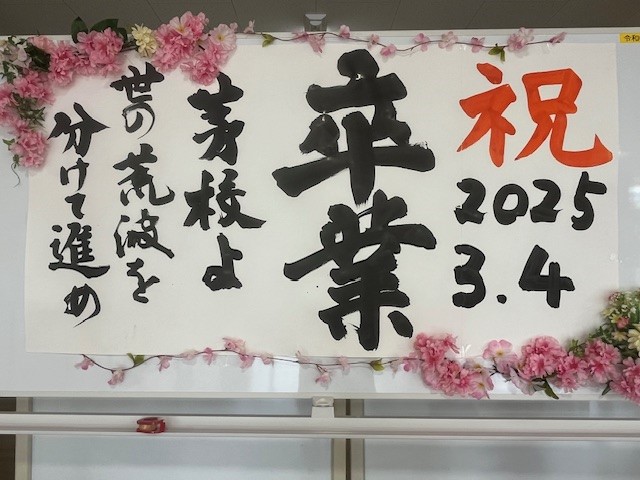 祝
2025
3.4
卒業
芽校よ
世の荒波を
分けて進め
令和